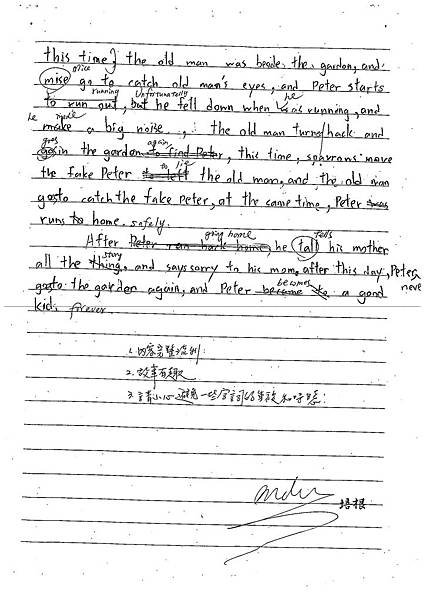 this time, the old man was beside the garden, and
mice
mise go to catch old man's eyes, and Peter starts
running Unfortunately he
to run out, but he fell down when was running, and
he made
make a big noise., the old man turns back and
goes again
go in the garden to find Peter, this time, sparrows move
to lie
the fake Peter to left the old man, and the old man
go to catch the fake Peter, at the same time, Peter was
runs to home. safely.
going home tells
After Peter ran back home, he tall his mother
story
all the thing, and says sorry to his mom, after this day, Peter
never
go to the garden again, and Peter became to a good
becomes
kid forever
1. 內容完整流利
2. 故事有趣
3. 請小心避免一些字詞的
培根